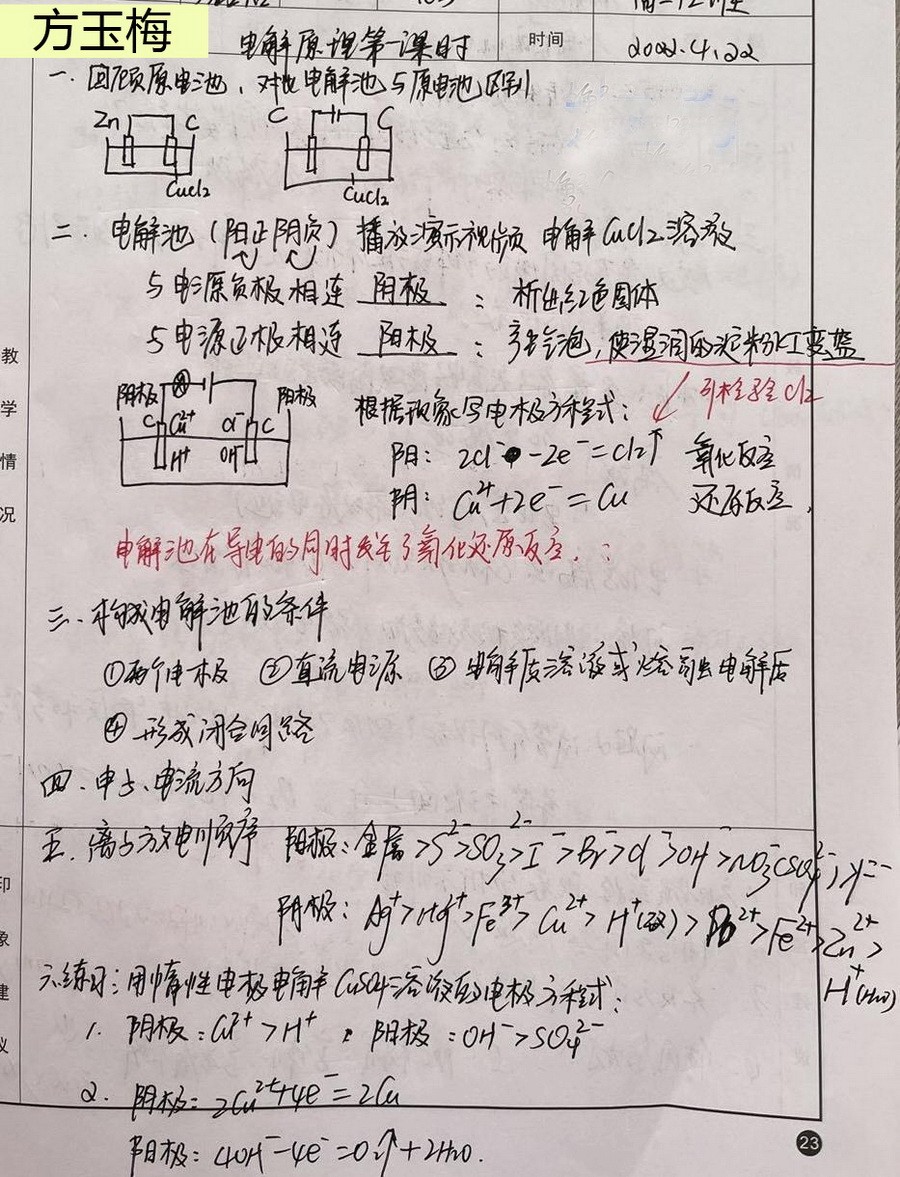 方玉梅
电解原理第一课时 时间 2022.4.22
一.回顾原电池,对比电解池与原电池区别
Zn C C C
CuCl2 CuCl2
二.电解池(阳正阴负)播放演示视频 电解CuCl2溶液
与电源负极相连 阴极 :析出红色固体
与电源正极相连 阳极 :产生气泡,使湿润的淀粉KI变蓝
引检验Cl2
阴极 A 阳极
C Cu²⁺ Cl⁻ C
H⁺ OH⁻
根据现象写电极方程式:
阳: 2Cl⁻ -2e⁻=Cl2↑ 氧化反应
阴: Cu²⁺+2e⁻=Cu 还原反应.
电解池在导电的同时发生了氧化还原反应.
三.构成电解池的条件
①两个电极 ②直流电源 ③电解质溶液或熔融电解质
④形成闭合回路
四.电子、电流方向
五.离子放电顺序 阳极:金属>S²⁻>SO₃²⁻>I⁻>Br⁻>Cl⁻>OH⁻>NO₃⁻(SO₄²⁻)
阴极:Ag⁺>Hg⁺>Fe³⁺>Cu²⁺>H⁺(酸)>Pb²⁺>Fe²⁺>Zn²⁺>
H⁺(H₂O)
六.练习:用惰性电极电解CuSO4溶液的电极方程式:
1. 阴极:Cu²⁺>H⁺ 阳极:OH⁻>SO₄²⁻
2. 阴极:2Cu²⁺+4e⁻=2Cu
阳极:4OH⁻-4e⁻=O2↑+2H2O.
教
学
情
况
印
象
建
议
23